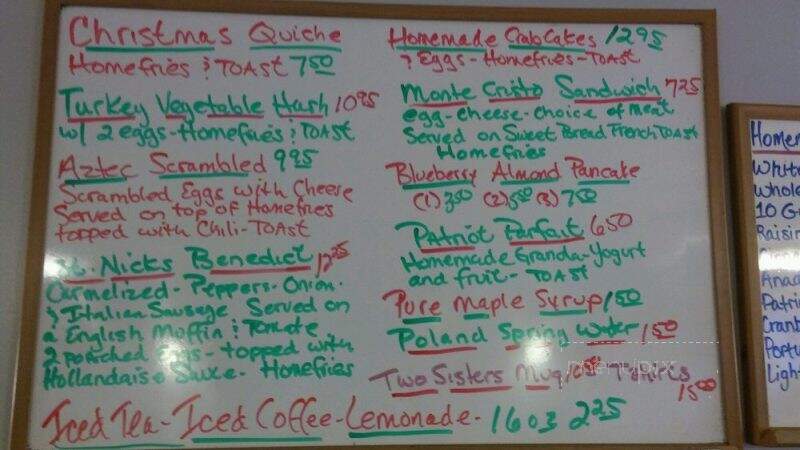 Christmas Quiche
Homefries & Toast 7 50
Turkey Vegetable Hash 10 95
w/ 2 eggs - Homefries & Toast
Aztec Scrambled 9 95
Scrambled Eggs with Cheese
Served on top of Homefries
topped with Chili - Toast
St. Nicks Benedict 12 25
Carmelized - Peppers - Onion
& Italian Sausage Served on
a English Muffin & Tomato
2 poached Eggs - topped with
Hollandaise Sauce - Homefries
Homemade Crab Cakes 12 95
& Eggs - Homefries - Toast
Monte Cristo Sandwich 7 25
egg - cheese - choice of meat
Served on Sweet Bread French Toast
Homefries
Blueberry Almond Pancake
(1) 3 50 (2) 5 50 (3) 7 50
Patriot Parfait 6 50
Homemade Granola - Yogurt
and fruit - Toast
Pure Maple Syrup 1 50
Poland Spring Water 1 50
Two Sisters Mug T-Shirts
15 00
Iced Tea - Iced Coffee - Lemonade - 16 oz 2 25
White
Whole
10 G
Raisin
Patri
Cranb
Portu
Light